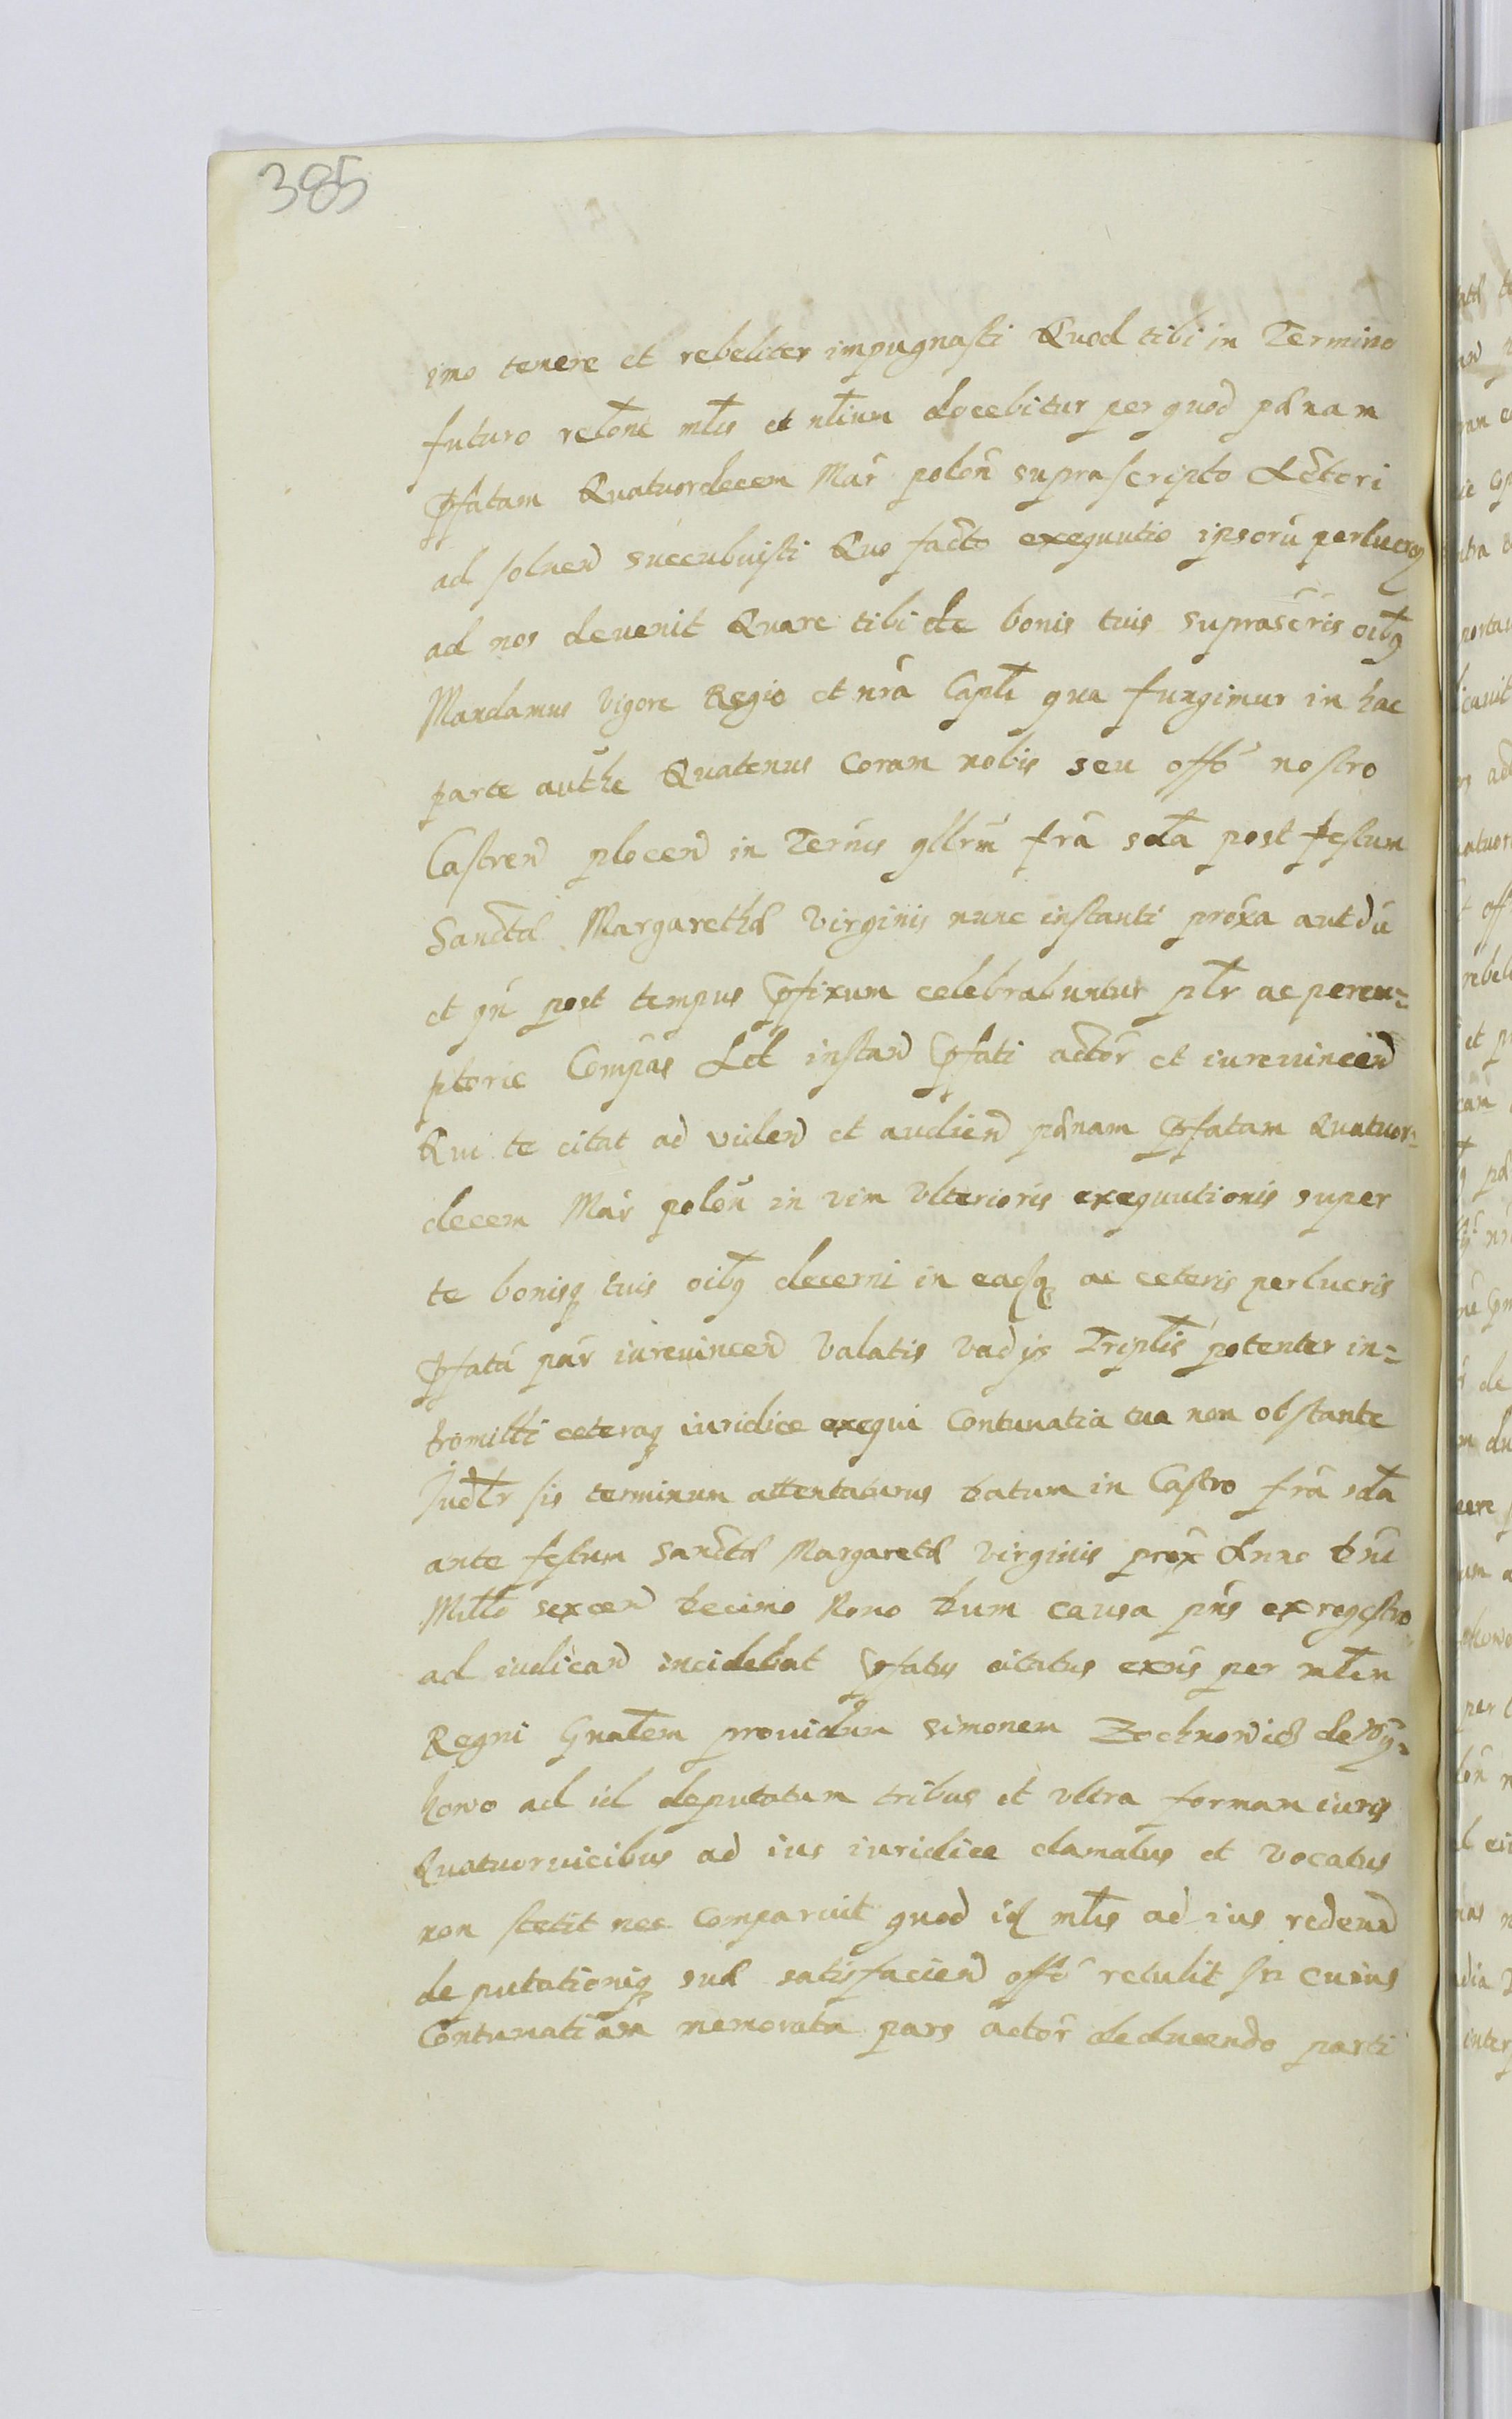 385
imo temere et rebeliter impugnasti Quod tibi in Termino
futuro relone mlis et nlium docebitur per quod pænam
Pfatam Quatuordecem Mar polon suprascripto Actori
ad soluen succubuisti Quo facto exequutio ipsoru perlucror
ad nos deuenit Quare tibi de bonis tuis suprascris oibq
Mandamus Vigore Regio et nra Capli qua fungimur in hac
parte authe Quatenus coram nobis seu offo nostro
Castren plocen in Ternis qllrm fra scda post festum
Sanctæ Margarethæ Virginis nunc instanti proxa aut du
et qn post tempus Pfixum celebrabuntur plr ac perem=
ptorie Compas Ad instan Pfati actor et iureuincen
Qui te citat ad viden et audien pænam Pfatam Quatuor=
decem Mar polon in vim Vlterioris exequutionis super
te bonisq tuis oibq decerni in easq ac ceteris perlucris
Pfata par iureuincen Valatis Vadys Triplis potenter in=
tromitti ceteraq iuridice exequi Contumatia tua non obstante
Judlr sis terminum attentaturus Datum in Castro fra scda
ante festum Sanctæ Margaretæ Virginis prox Anno Dni
Millo sexcen Decimo Nono Dum causa pns ex regestro
ad iudican incidebat Pfatus citatus exns per mlem
Regni Gnalem prouidum Simonem Zochnowicz de Wy=
kowo ad id deputatum tribus et vltra formam iuris
Quatuoruicibus ad ius iuridice clamatus et vocatus
non stetit nec comparuit quod id mlis ad ius reden
deputationiq suæ satisfacien offo retulit In cuius
Contumatiam memorata pars actor deducendo parti